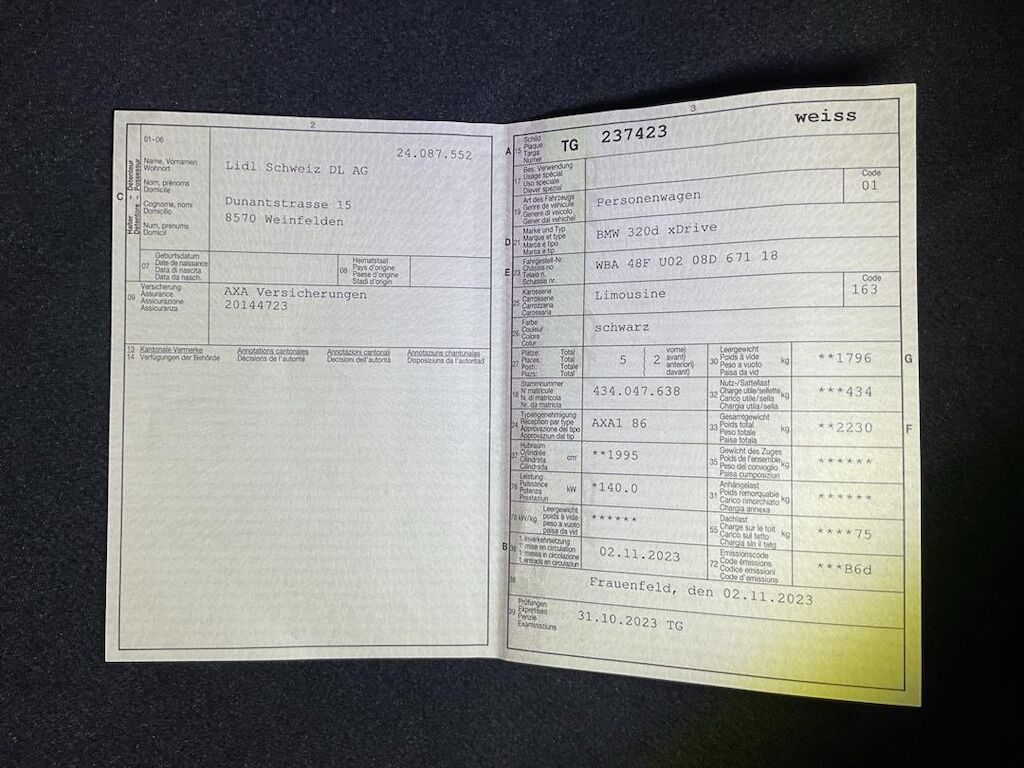 2
01-06
24.087.552
C
Halter - Détenteur
Detentore - Possessur
Name, Vornamen
Wohnort
Nom, prénoms
Domicile
Cognome, nomi
Domicilio
Num, prenums
Domicil
Lidl Schweiz DL AG
Dunantstrasse 15
8570 Weinfelden
07
Geburtsdatum
Date de naissance
Data di nascita
Data da nasch.
08
Heimatstaat
Pays d'origine
Paese d'origine
Stadi d'origin
09
Versicherung
Assurance
Assicurazione
Assicuranza
AXA Versicherungen
20144723
13 Kantonale Vermerke
14 Verfügungen der Behörde
Annotations cantonales
Décisions de l'autorité
Annotazioni cantonali
Decisioni dell'autorità
Annotaziuns chantunalas
Disposiziuns da l'autoritad
3
A
15
Schild
Plaque
Targa
Numer
TG 237423
weiss
17
Bes. Verwendung
Usage spécial
Uso speciale
Diever spezial
19
Art des Fahrzeugs
Genre de véhicule
Genere di veicolo
Gener dal vehichel
Personenwagen
Code
01
D
21
Marke und Typ
Marque et type
Marca e tipo
Marca e tip
BMW 320d xDrive
E
23
Fahrgestell-Nr.
Châssis no
Telaio n.
Schassis nr.
WBA 48F U02 08D 671 18
25
Karosserie
Carrosserie
Carrozzeria
Carossaria
Limousine
Code
163
26
Farbe
Couleur
Colore
Colur
schwarz
27
Plätze: Total
Places: Total
Posti: Totale
Plazs: Total
5
2
vorne)
avant)
anteriori)
davant)
30
Leergewicht
Poids à vide
Peso a vuoto
Paisa da vid
kg
**1796
G
18
Stammnummer
N° matricule
N. di matricola
Nr. da matricla
434.047.638
32
Nutz-/Sattellast
Charge utile/sellette
Carico utile/sella
Chargia utila/sella
kg
***434
24
Typengenehmigung
Réception par type
Approvazione del tipo
Approvaziun dal tip
AXA1 86
33
Gesamtgewicht
Poids total
Peso totale
Paisa totala
kg
**2230
F
37
Hubraum
Cylindrée
Cilindrata
Cilindrada
cm³
**1995
35
Gewicht des Zuges
Poids de l'ensemble
Peso del convoglio
Paisa cumposiziun
kg
******
76
Leistung
Puissance
Potenza
Prestaziun
kW
*140.0
31
Anhängelast
Poids remorquable
Carico rimorchiato
Chargia annexa
kg
******
78 kW/kg
Leergewicht
poids à vide
peso a vuoto
paisa da vid
******
55
Dachlast
Charge sur le toit
Carico sul tetto
Chargia sin il tetg
kg
****75
B
36
1. Inverkehrsetzung
1re mise en circulation
1a messa in circolazione
1. entrada en circulaziun
02.11.2023
72
Emissionscode
Code émissions
Codice emissioni
Code d'emissiuns
***B6d
38
Frauenfeld, den 02.11.2023
39
Prüfungen
Expertises
Perizie
Examinaziuns
31.10.2023 TG